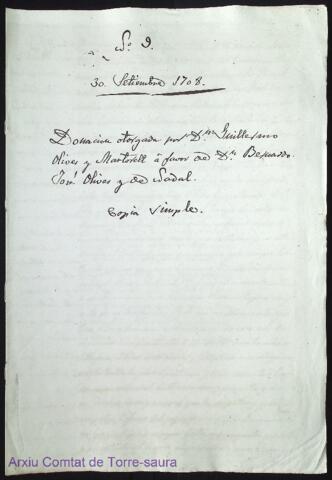 Nº 9.
30. Setiembre 1708.
Donacion otorgada por Dn Guillermo
Olives y Martorell á favor de Dn Bernardo
José Olives y de Nadal.
Copia simple.
Arxiu Comtat de Torre-saura